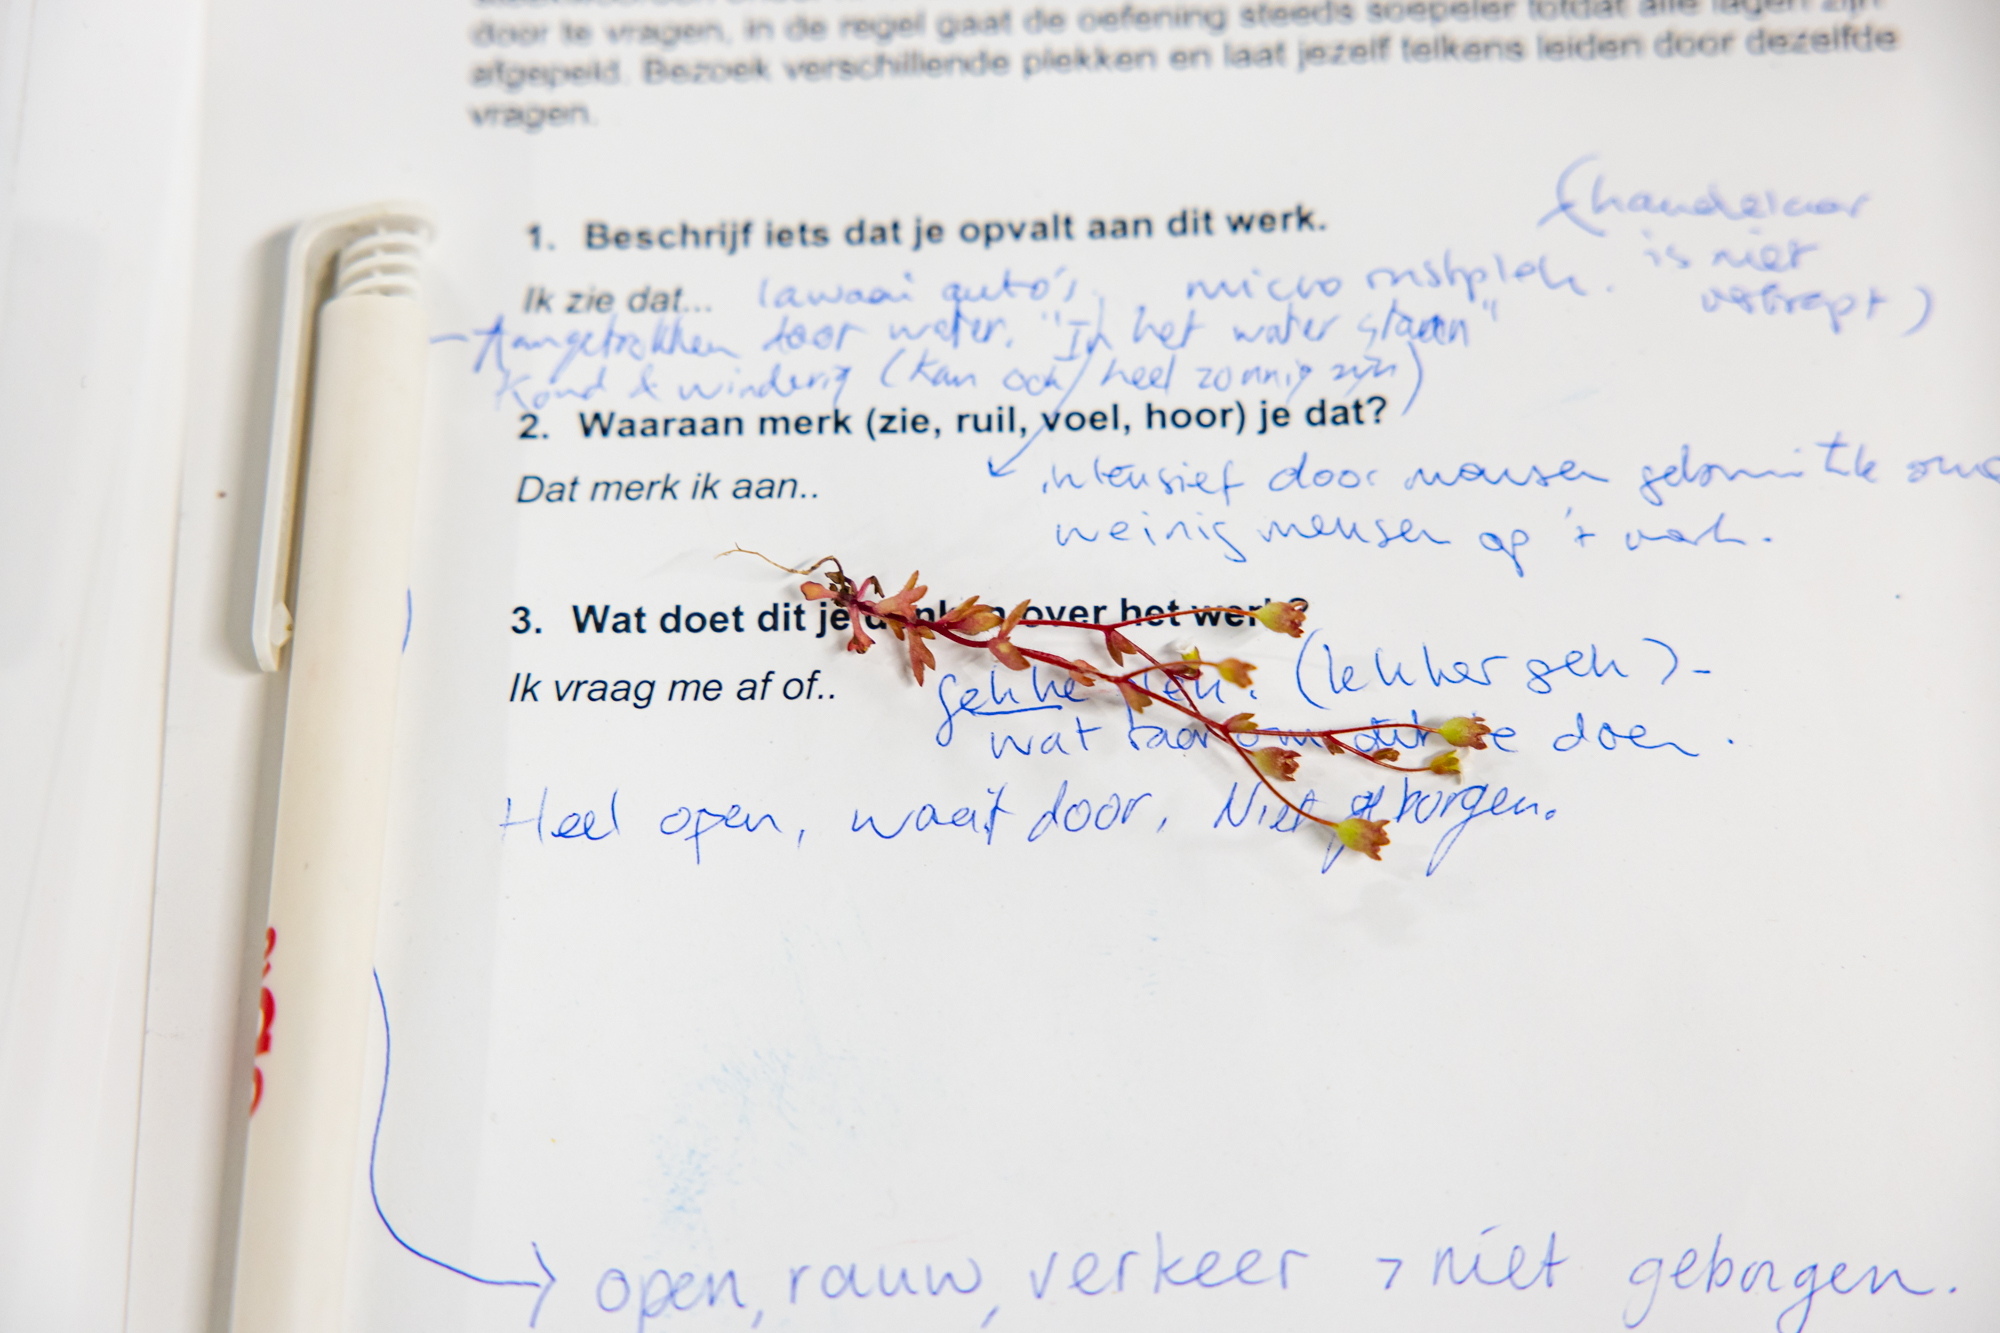 door te vragen, in de regel gaat de oefening steeds soepeler totdat alle lagen zijn
afgepeld. Bezoek verschillende plekken en laat jezelf telkens leiden door dezelfde
vragen.
1. Beschrijf iets dat je opvalt aan dit werk.
(handelaar
is niet
Ik zie dat... lawaai auto's, micro rustplek.
- Aangetrokken door water. "In het water staan"
Koud & winderig (kan ook heel zonnig zijn)
2. Waaraan merk (zie, ruil, voel, hoor) je dat?
Dat merk ik aan.. intensief door mensen
weinig mensen op 't
3. Wat doet dit je denken over het werk?
Ik vraag me af of.. gekke plek. (lekker gek) -
wat om dit te doen.
Heel open, waait door, Niet geborgen.
open, rauw, verkeer > niet geborgen.